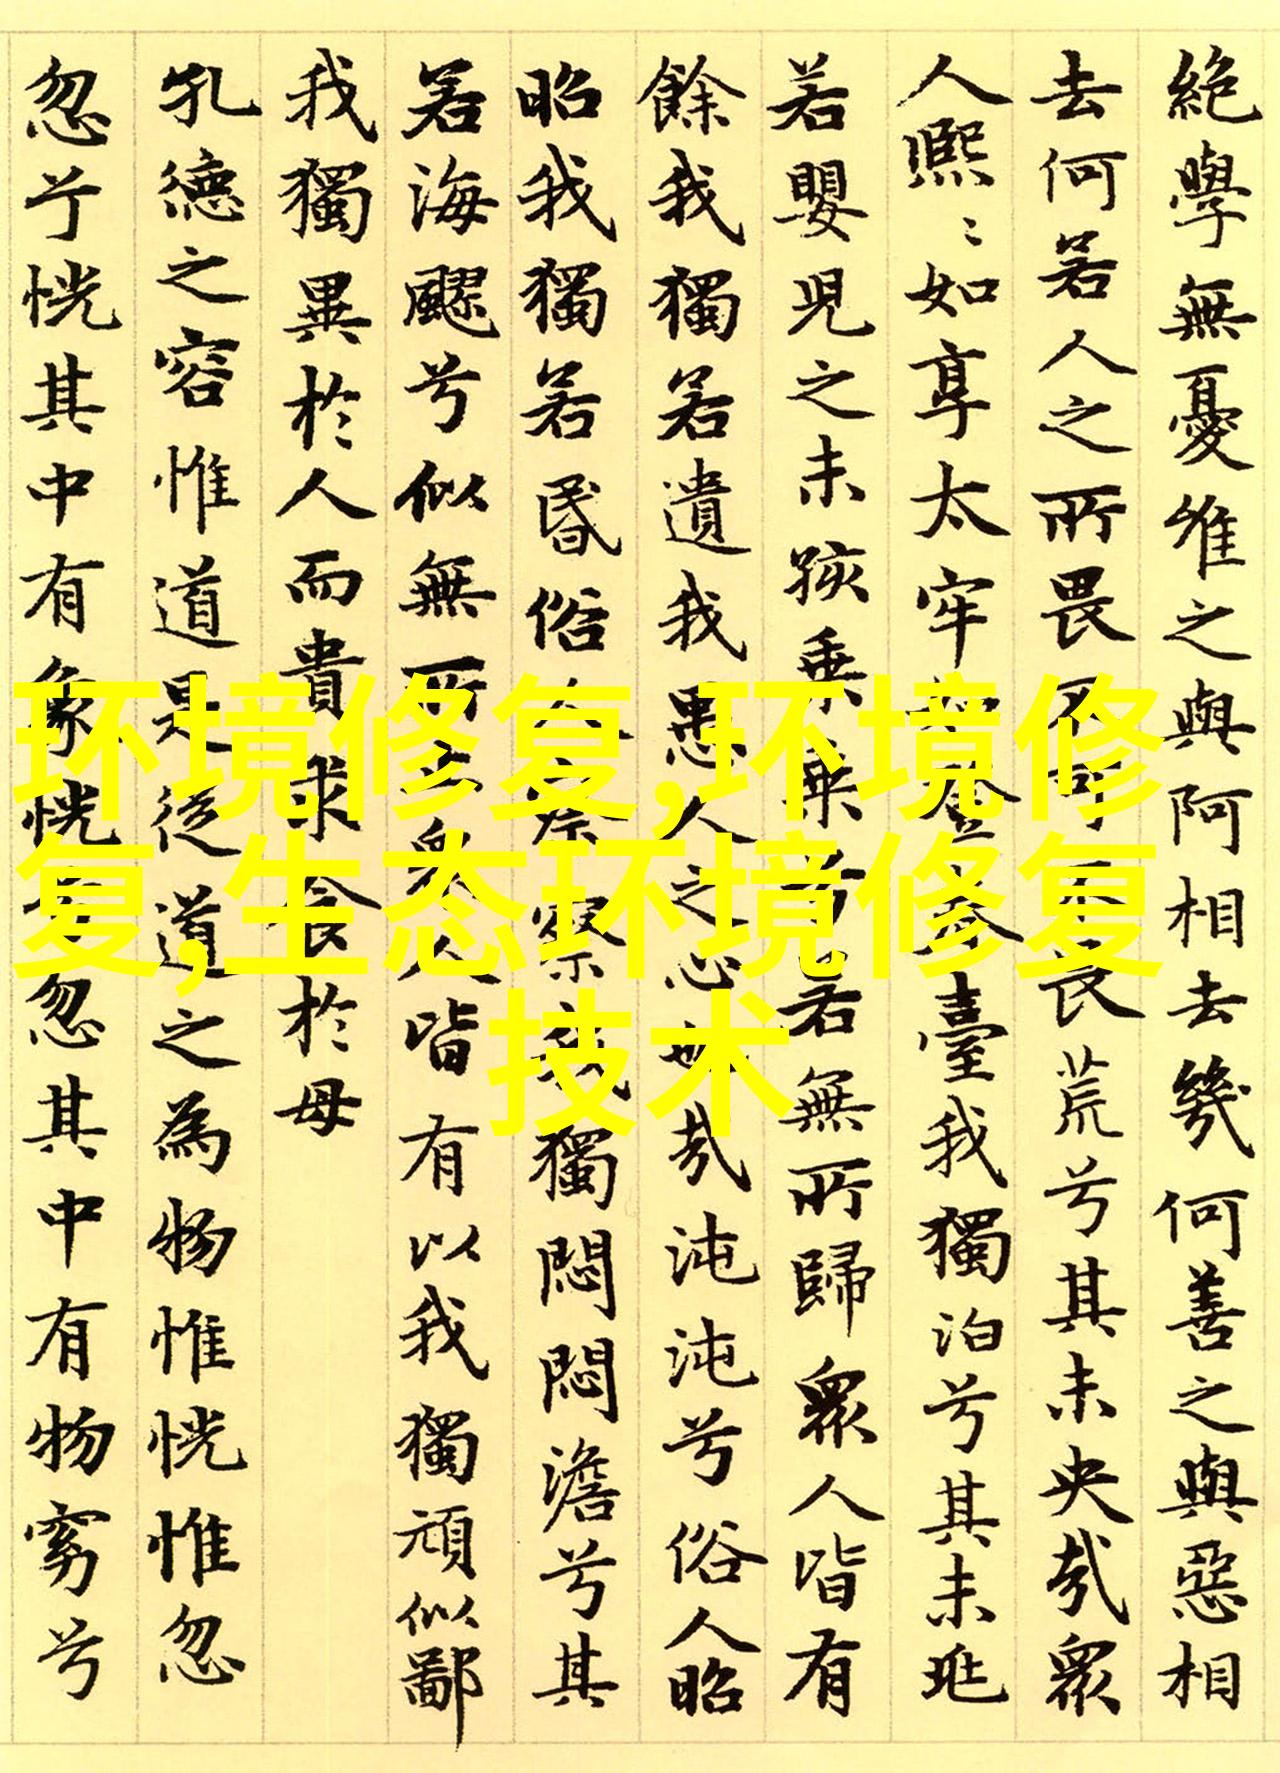 絶學無憂唯之與阿相去幾何善之與惡相
去何若人之所畏不可不畏荒兮其未央哉眾
人熙〻如享太牢如登春臺我獨泊兮其未兆
若嬰兒之未孩乘乘兮若無所歸眾人皆有
餘我獨若遺我愚人之心也哉沌沌兮俗人昭
昭我獨若昏俗人察察我獨悶悶澹兮其
若海飂兮似無所止眾人皆有以我獨頑似鄙
我獨異於人而貴求食於母
孔德之容惟道是從道之為物惟恍惟忽
忽兮恍其中有象恍兮忽其中有物窈兮
环境修复,环境修
复,生态环境修复
技术